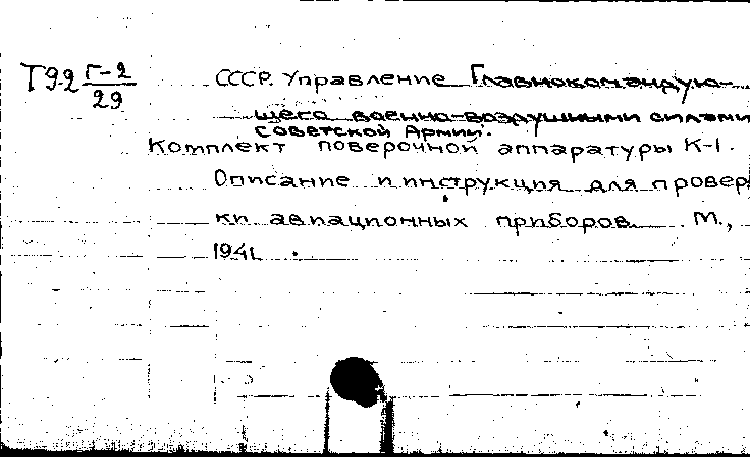 Т92 Г-2/29
СССР. Управление Главнокомандую-
щего военно-воздушными силами
Советской Армии.
Комплект поверочной аппаратуры К-1.
Описание и инструкция для провер
ки авиационных приборов. М.,
1941.